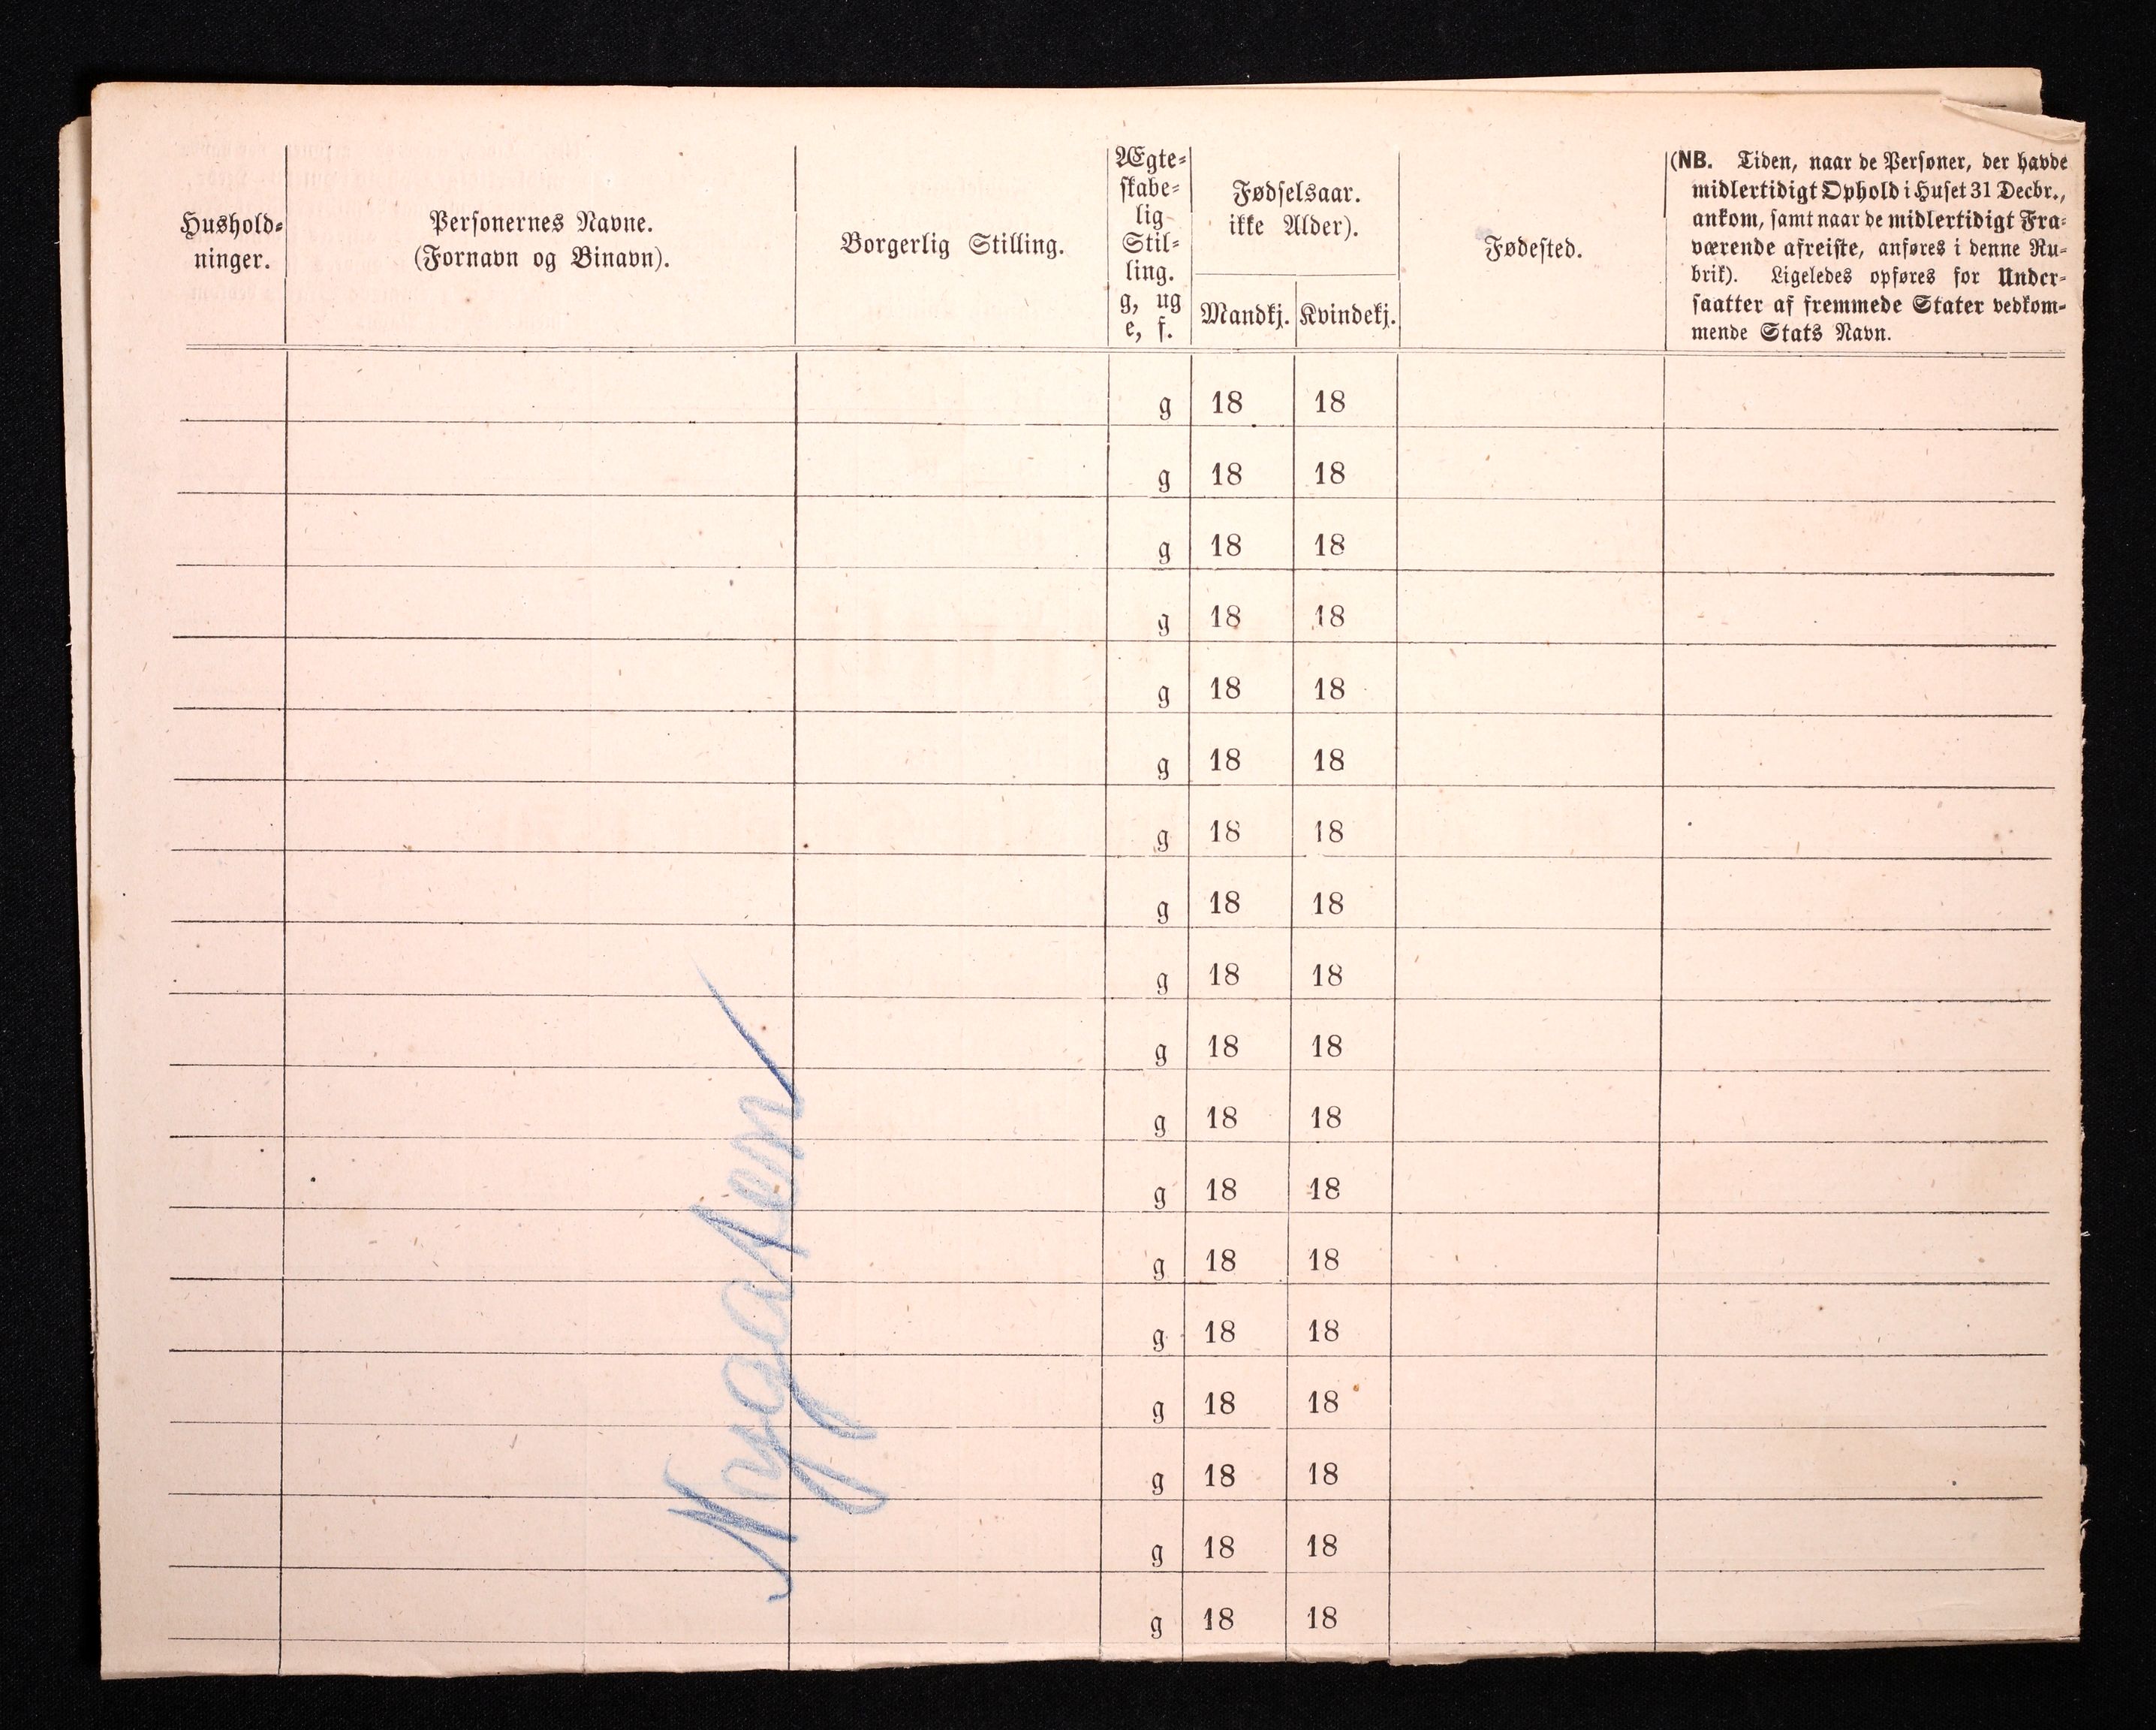 Hushold-
ninger.
Personernes Navne.
(Fornavn og Binavn).
Borgerlig Stilling.
Ægte-
skabe-
lig
Stil-
ling.
g, ug
e, f.
Fødselsaar.
ikke Alder).
Mandkj. Kvindekj.
Fødested.
(NB. Tiden, naar de Personer, der havde
midlertidigt Ophold i Huset 31 Decbr.,
ankom, samt naar de midlertidigt Fra-
værende afreiste, anføres i denne Ru-
brik). Ligeledes opføres for Under-
saatter af fremmede Stater vedkom-
mende Stats Navn.
g 18 18
g 18 18
g 18 18
g 18 18
g 18 18
g 18 18
g 18 18
g 18 18
g 18 18
g 18 18
g 18 18
g 18 18
g 18 18
g 18 18
g 18 18
g 18 18
g 18 18
g 18 18
Nygaten